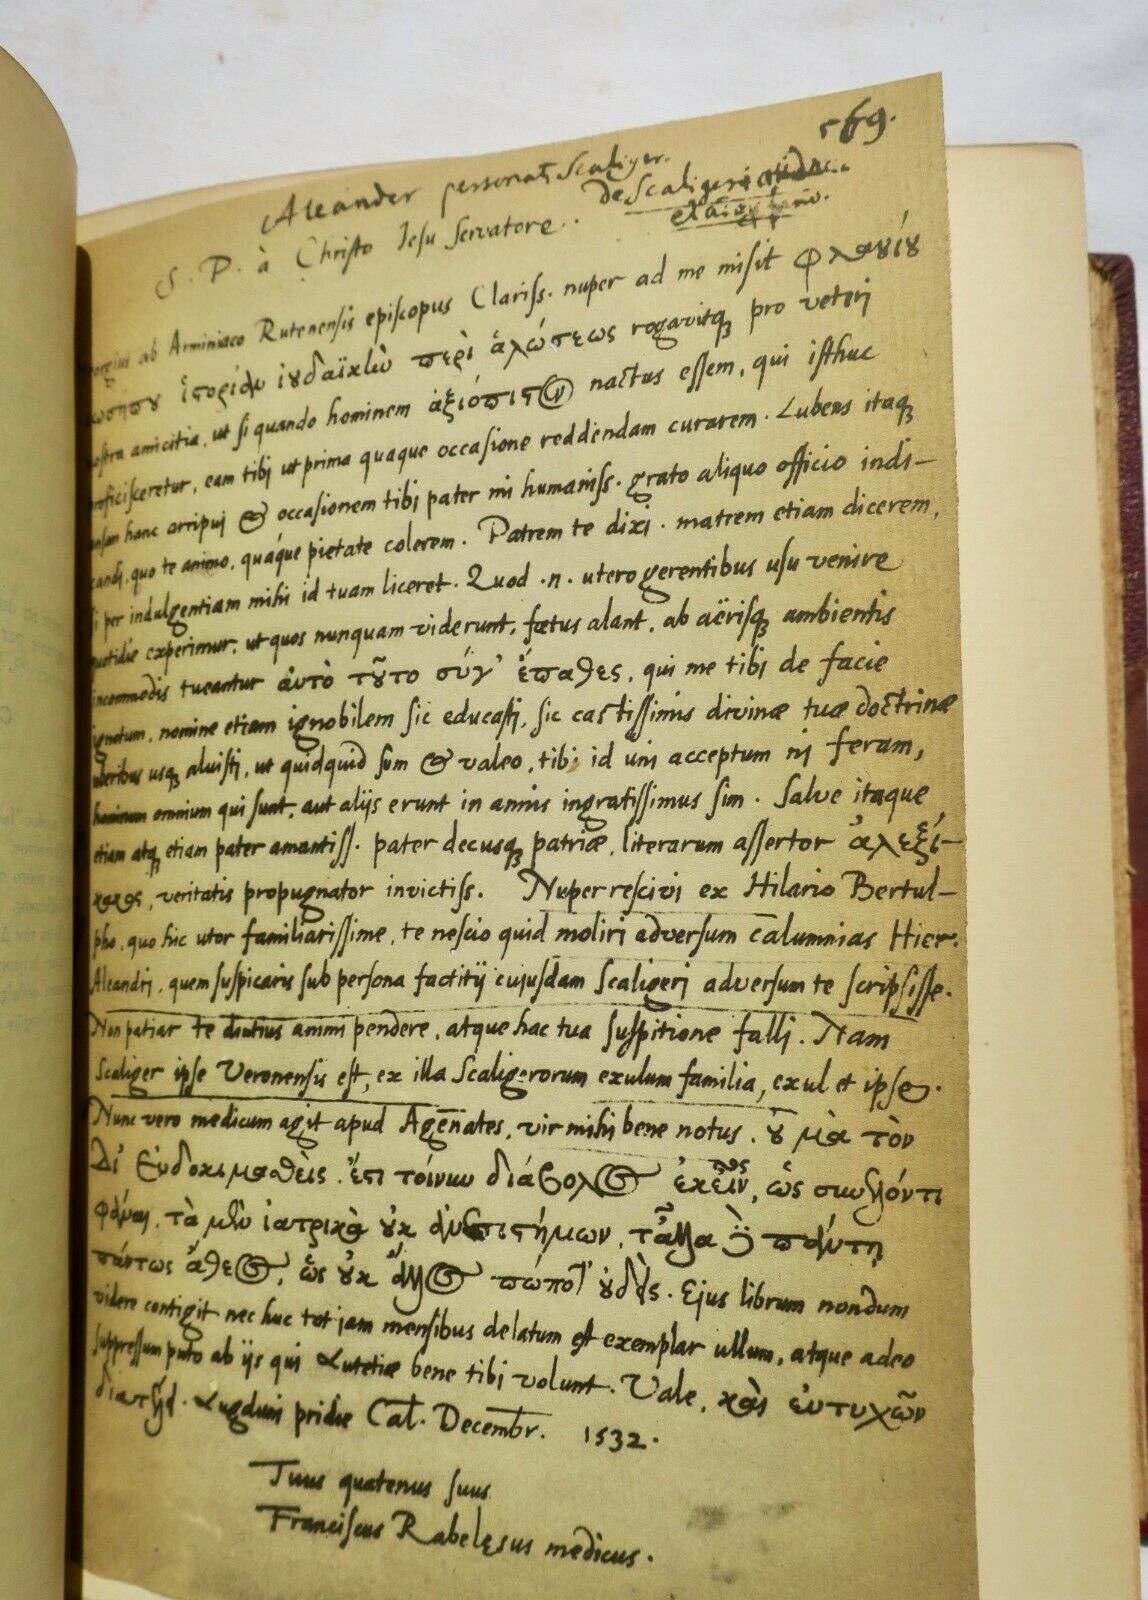 569.
Aleander personatꝰ Scaliger.
de Scaligeri
S. P. à Christo Iesu Servatore.
ab Arminiaco Rutenensis episcopus Clariss. nuper ad me misit φλαουΐου
ἱστορίαν ἰουδαϊκὴν περὶ ἁλώσεως rogavitq; pro veteri
nostra amicitia, ut si quando hominem ἀξιόπιστον nactus essem, qui isthuc
proficisceretur, eam tibi ut prima quaque occasione reddendam curarem. Lubens itaq;
ansam hanc arripui & occasionem tibi pater mi humaniss. grato aliquo officio indi-
candi, quo te animo, quáque pietate colerem. Patrem te dixi. matrem etiam dicerem,
si per indulgentiam mihi id tuam liceret. Quod .n. utero gerentibus usu venire
quotidie experimur, ut quos nunquam viderunt, fœtus alant, ab aërisq; ambientis
incommodis tueantur αὐτὸ τοῦτο σύγ' ἔπαθες, qui me tibi de facie
ignotum, nomine etiam ignobilem sic educasti, sic castissimis divinæ tuæ doctrinæ
uberibus usq; aluisti, ut quidquid sum & valeo, tibi id uni acceptum ni feram,
hominum omnium qui sunt, aut alijs erunt in annis ingratissimus sim. Salve itaque
etiam atq; etiam pater amantiss. pater decusq; patriæ, literarum assertor ἀλεξί-
κακος, veritatis propugnator invictiss. Nuper rescivi ex Hilario Bertul-
pho, quo hic utor familiarissime, te nescio quid moliri adversum calumnias Hier.
Aleandri, quem suspicaris sub persona factitij cujusdam Scaligeri adversum te scripsisse.
Non patiar te diutius animi pendere, atque hac tua suspitione falli. Nam
Scaliger ipse Veronensis est, ex illa Scaligerorum exulum familia, exul et ipse.
Nunc vero medicum agit apud Agenates, vir mihi bene notus. οὐ μὰ τὸν
Δί' εὐδοκιμασθείς. ἔστι τοίνυν διάβολος ἐκεῖνος, ὡς συνελόντι
φάναι, τὰ μὲν ἰατρικὰ οὐκ ἀνεπιστήμων, τἆλλα δὲ πάντη
πάντως ἄθεος, ὡς οὐκ ἄλλος πώποτ' οὐδείς. Ejus librum nondum
videre contigit nec huc tot jam mensibus delatum est exemplar ullum, atque adeo
suppressum puto ab ijs qui Lutetiæ bene tibi volunt. Vale, καὶ εὐτυχῶν
διατέλει. Lugduni pridie Cal. Decembr. 1532.
Tuus quatenus suus
Franciscus Rabelæsus medicus.